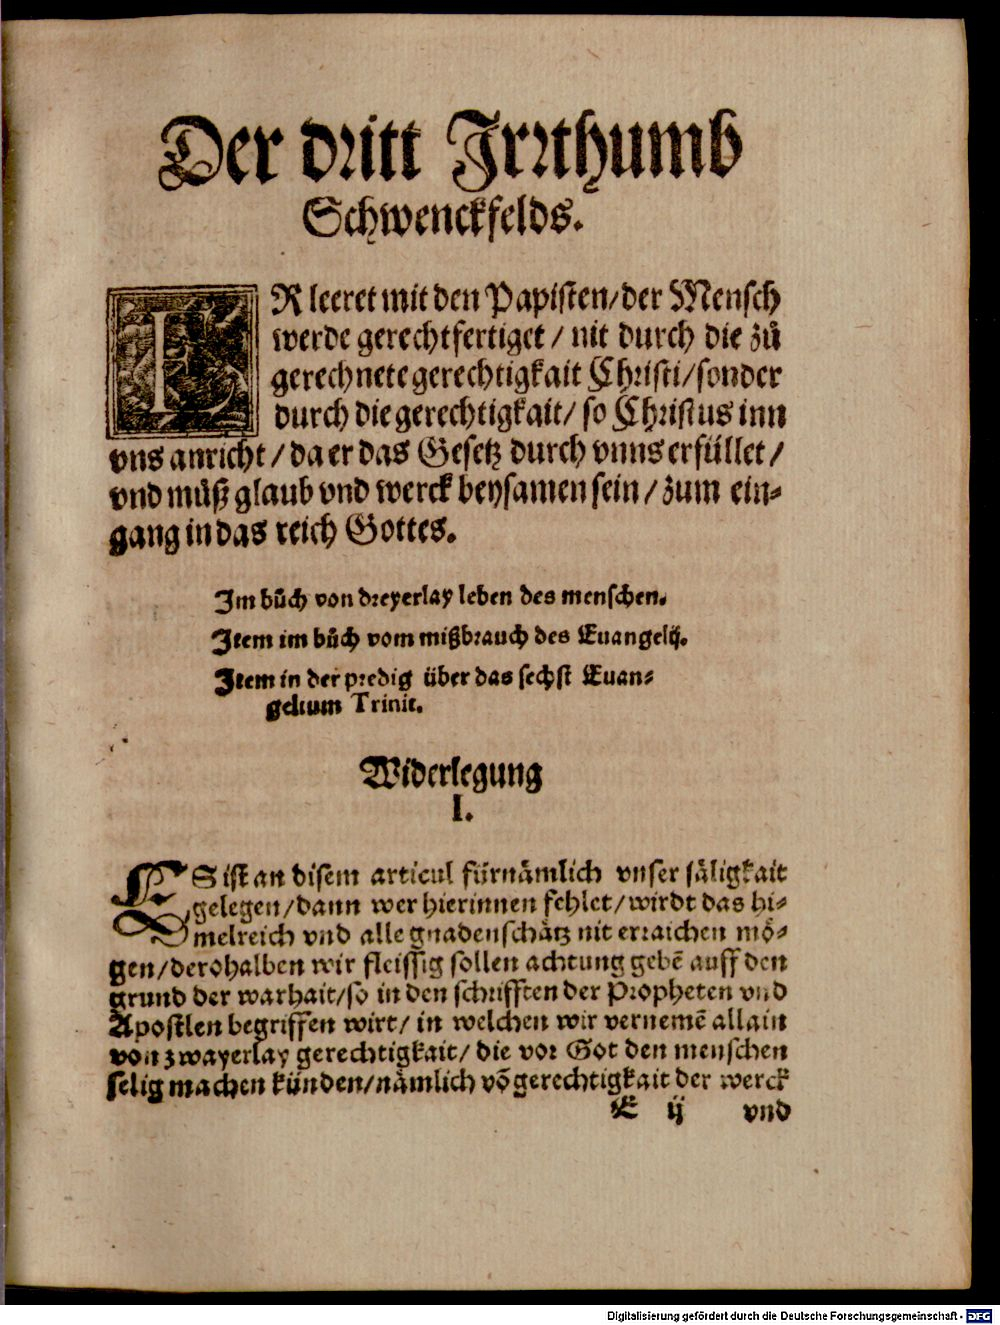 Der dritt Irrthumb
Schwenckfelds.
ER leeret mit den Papisten/der Mensch
werde gerechtfertiget / nit durch die zů
gerechnete gerechtigkait Christi/sonder
durch die gerechtigkait/ so Christus inn
vns anricht / da er das Gesetz durch vnns erfüllet /
vnd můß glaub vnd werck beysamen sein / zum ein⸗
gang in das reich Gottes.
Im bůch von dreyerlay leben des menschen.
Item im bůch vom mißbrauch des Euangelij.
Item in der predig über das sechst Euan⸗
gelium Trinit.
Widerlegung
I.
ES ist an disem articul fürnämlich vnser säligkait
gelegen/dann wer hierinnen fehlet/wirdt das hi⸗
melreich vnd alle gnadenschätz nit erraichen mö⸗
gen/derohalben wir fleissig sollen achtung gebē auff den
grund der warhait/so in den schrifften der Propheten vnd
Apostlen begriffen wirt/ in welchen wir vernemē allain
von zwayerlay gerechtigkait/ die vor Got den menschen
selig machen künden/nämlich vō gerechtigkait der werck
E ij vnd
Digitalisierung gefördert durch die Deutsche Forschungsgemeinschaft - DFG